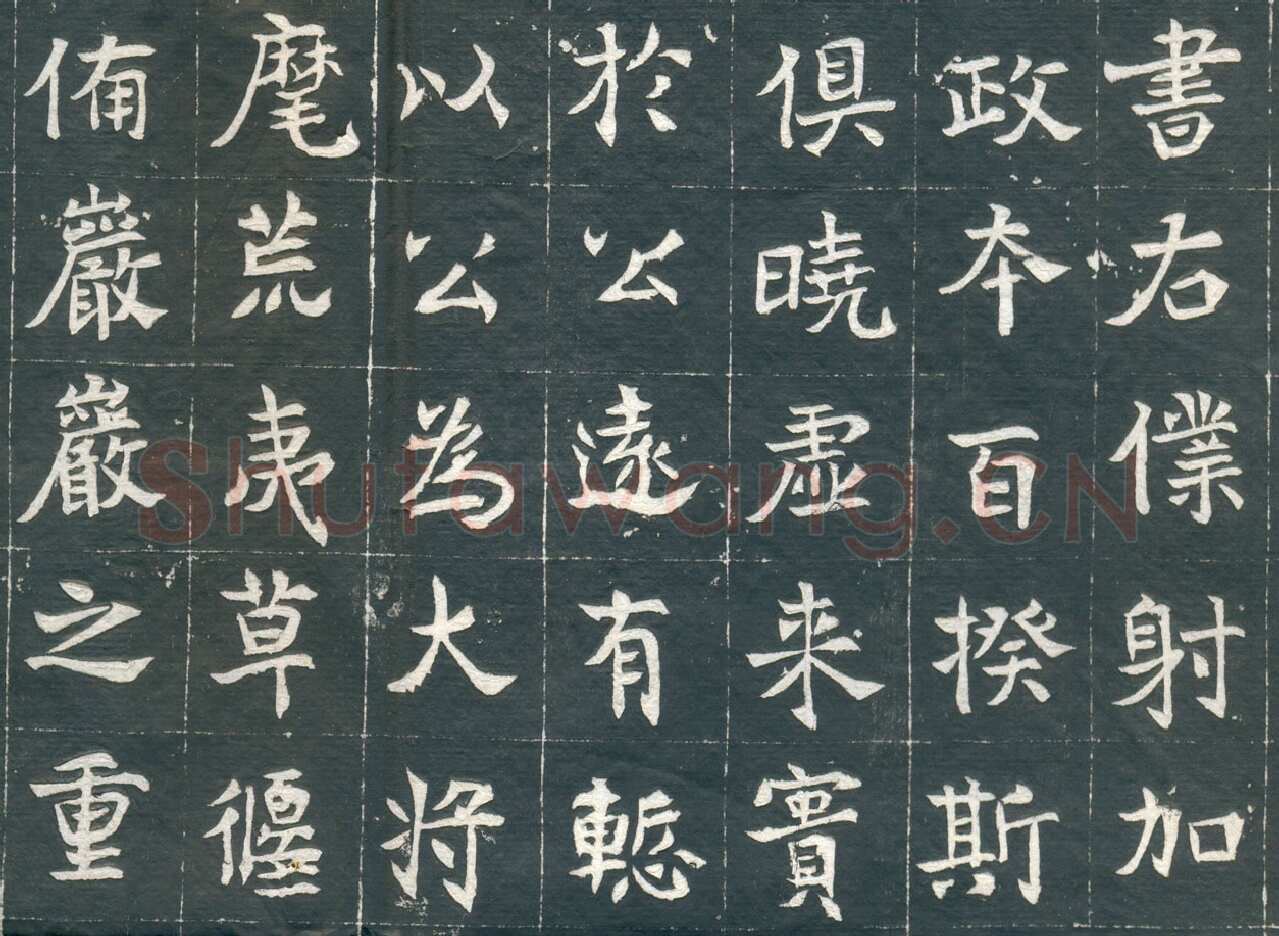 書右僕射加
政本百揆斯
俱曉虛来實
於公遠有慙
以公為大将
麾荒夷草偃
俻嚴嚴之重
Shufawang.CN